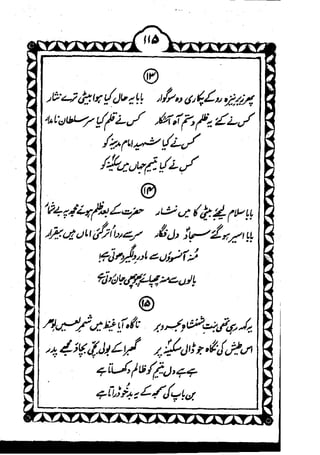 ۱۱۵
۱۳
پھر زیر نیزہ رو کے پکاری وہ سوگوار بابا یہ حال کیا ہوا بیٹی ترے نثار
کس نے کئے یہ ظلم و ستم آہ آشکار کس نے قلم کیا سر سلطان نامدار
کس نے کیا شہید امام مدینہ کو
کس نے کیا یتیم جہاں میں سکینہ کو
۱۴
بابا سلام لیجئے بیٹی کا میں نثار حضرت کے بعد ظلم ہوئے مجھ پہ بے شمار
بابا اسیر ہو گئے سجاد دل فگار سر سے ردا اتر گئی اماں ہیں بیقرار
منہ آنسوؤں سے مادر دلگیر دھوتی ہے
بالوں سے منہ چھپائے پھوپھی جان روتی ہے
۱۵
یہ کہہ رہی تھی بنت شہنشاہ بحر و بر ناگاہ آیا غیظ میں شمر لعیں ادھر
اس طیش کی نگاہ جو ڈالی سکینہ پر گھبرا کے بولی بچی بچاؤ مجھے پدر
ہے ہے دل یتیم کو ظالم دکھاتا ہے
بن باپ کی سمجھ کے یہ بدخو ڈراتا ہے